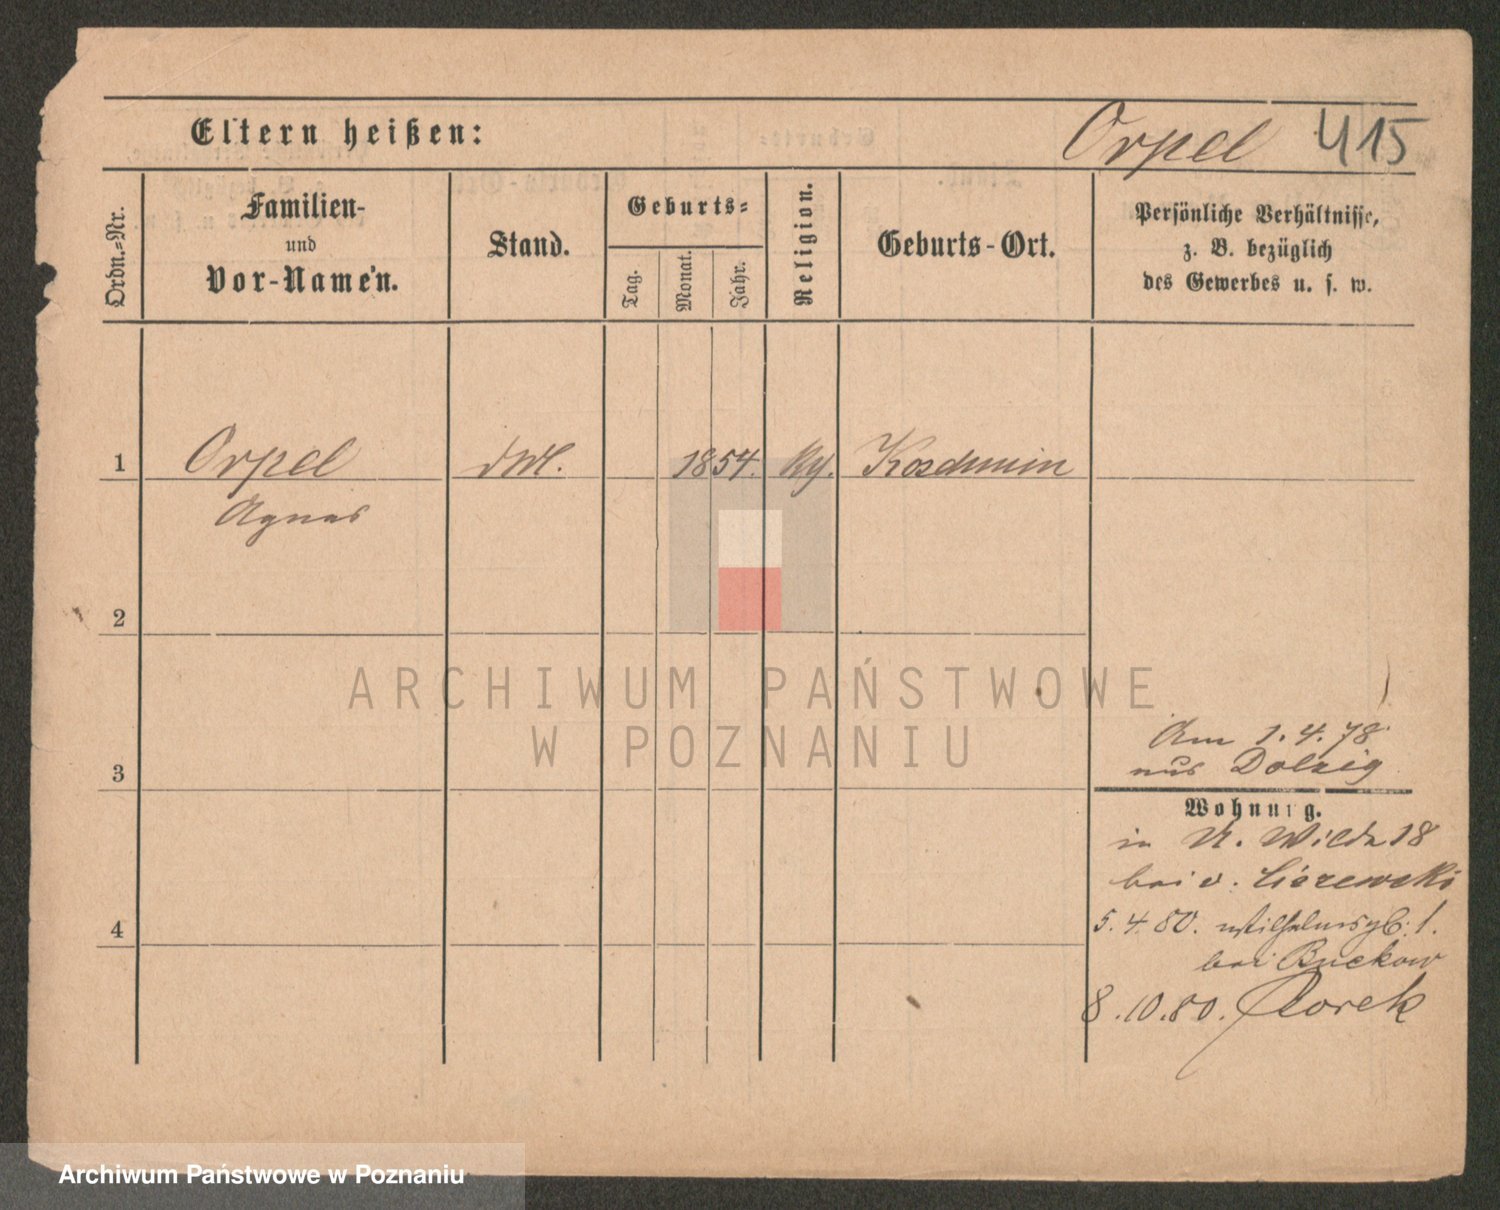 Eltern heißen:
Orpel 415
Ordn.=Nr.
Familien-
und
Vor-Namen.
Stand.
Geburts=
Tag.
Monat.
Jahr.
Religion.
Geburts-Ort.
Persönliche Verhältnisse,
z. B. bezüglich
des Gewerbes u. s. w.
1 Orpel 1854. Koschmin
Agnes
2
3
4
Am 1.4.78
aus Dolzig
Wohnung.
in U. Wilda 18
bei v.
5.4.80. 1.
bei Buckow
8.10.80.
ARCHIWUM PAŃSTWOWE
W POZNANIU
Archiwum Państwowe w Poznaniu